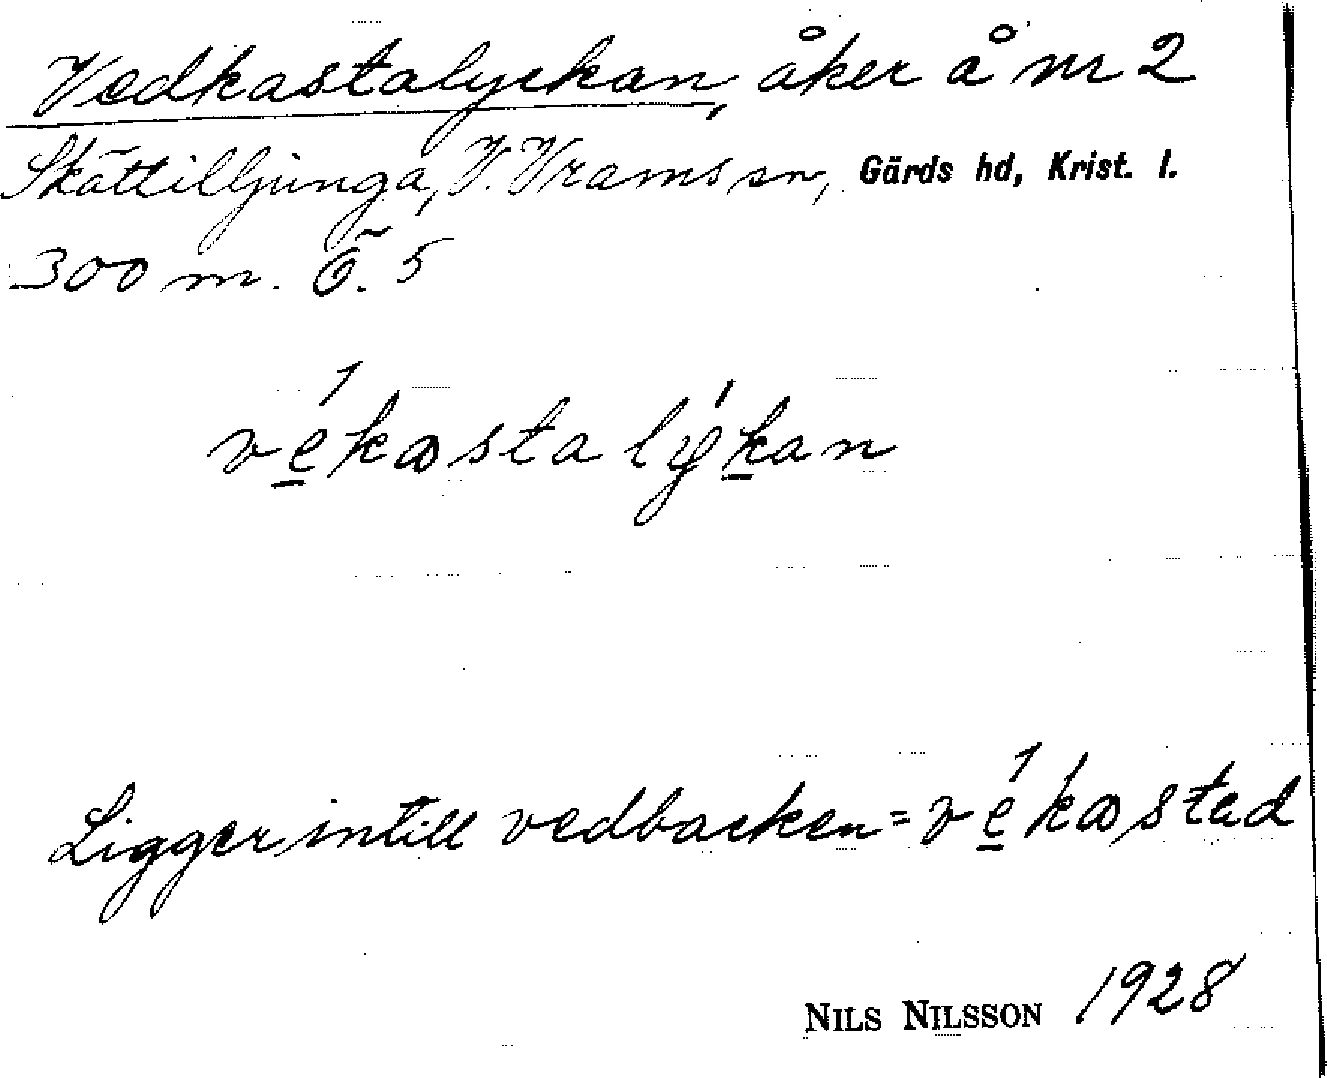 Vedkastalyckan, åker å nr 2
Skättilljunga, V. Vrams sn, Gärds hd, Krist. l.
300 m. Ö. 5
vékastalýkan
Ligger intill vedbacken = vékastad
NILS NILSSON 1928